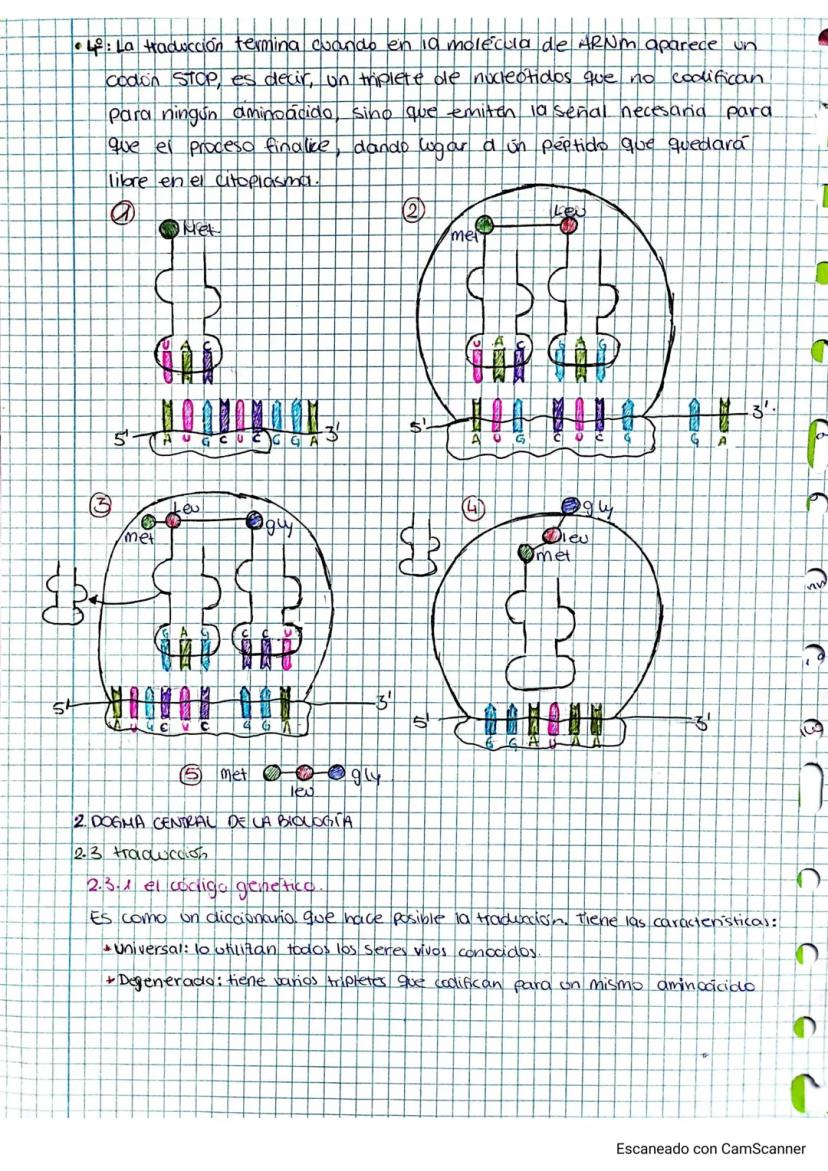 • 4º: La traducción termina cuando en la molécula de ARNm aparece un
codón STOP, es decir, un triplete de nucleótidos que no codifican
para ningún aminoácido, sino que emiten la señal necesaria para
que el proceso finalice, dando lugar a un péptido que quedará
libre en el citoplasma.
1
Met
U A C
5' A U G C U C G G A 3'
2
met Leu
U A C G A G
5' A U G C U C G G A 3'
3
met Leu gly
G A G C C U
5' A U G C U C G G A 3'
4
gly
leu
met
5' G G A U A A 3'
5 met leu gly
2. DOGMA CENTRAL DE LA BIOLOGÍA
2.3 traducción
2.3.1 el código genético.
Es como un diccionario que hace posible la traducción. Tiene las características:
+ Universal: lo utilizan todos los seres vivos conocidos.
+ Degenerado: tiene varios tripletes que codifican para un mismo aminoácido
Escaneado con CamScanner